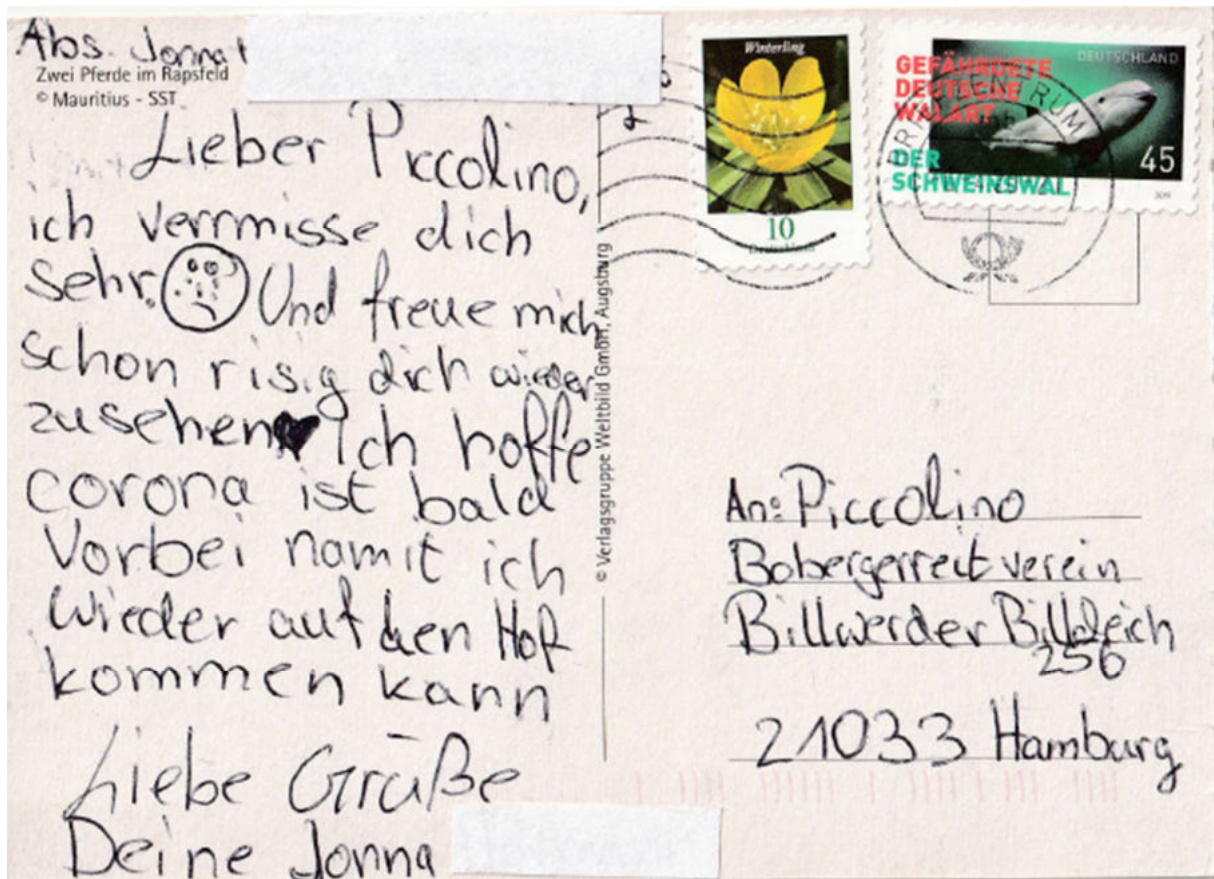 Abs. Jonna
Zwei Pferde im Rapsfeld
© Mauritius - SST
Lieber Piccolino,
ich vermisse dich
sehr. Und freue mich
schon risig dich wieder
zusehen ♥ Ich hoffe
corona ist bald
Vorbei namit ich
wieder auf den Hof
kommen kann
Liebe Grüße
Deine Jonna
© Verlagsgruppe Weltbild GmbH, Augsburg
Winterling
10
Deutschland
DEUTSCHLAND
GEFÄHRDETE
DEUTSCHE
WALART
DER
SCHWEINSWAL
45
An: Piccolino
Bobergerreitverein
Billwerder Billdeich
256
21033 Hamburg